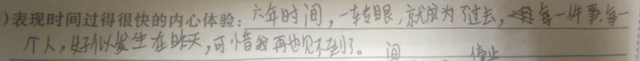 )表现时间过得很快的内心体验：六年时间，一转眼，就成为了过去，每一件事，每一
个人，好似发生在昨天，可惜我再也见不到了。 间 停止